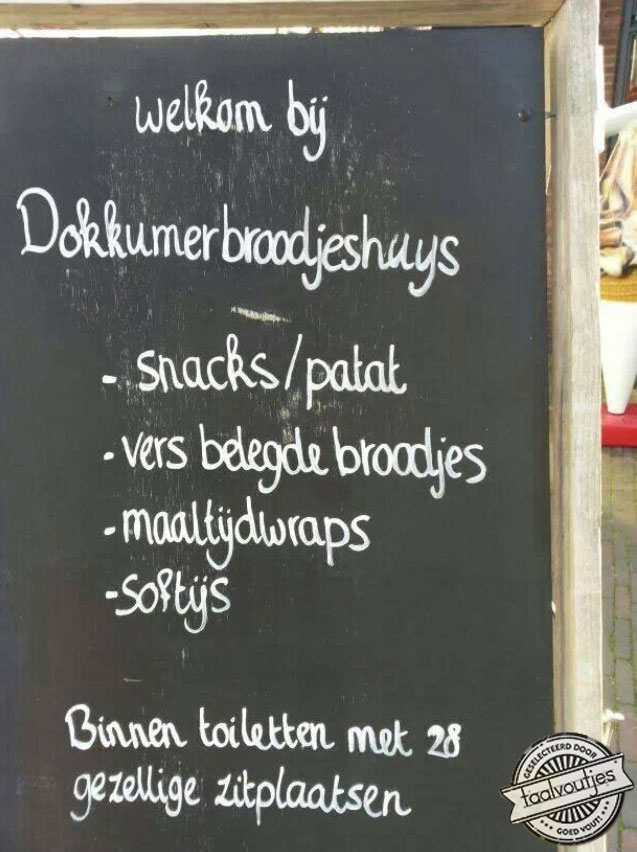 welkom bij
Dokkumerbroodjeshuys
- snacks/patat
- vers belegde broodjes
- maaltijdwraps
- softijs
Binnen toiletten met 28
gezellige zitplaatsen
GESELECTEERD DOOR
taalvoutjes
GOED VOUT!